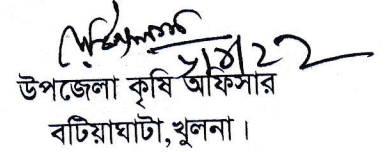 উপজেলা কৃষি অফিসার
বটিয়াঘাটা,খুলনা।